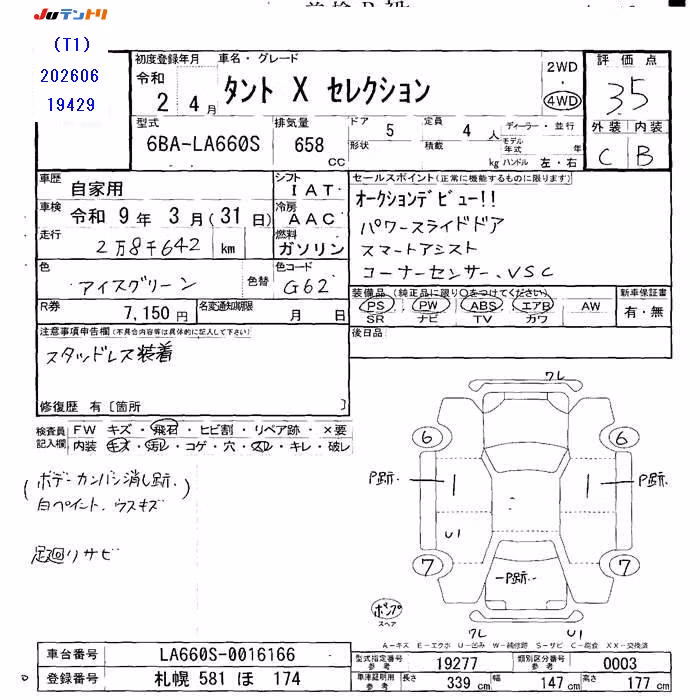 JUテントリ
(T1)
202606
19429
初度登録年月
令和
2 4月
車名・グレード
タント X セレクション
2WD
・
4WD
評価点
35
外装 内装
C B
型式
6BA-LA660S
排気量
658
CC
ドア
5
形状
定員
4 人
積載
kg
ディーラー・並行
モデル年式 年
ハンドル 左・右
車歴
自家用
車検
令和 9年 3月(31日)
走行
2万8千642 km
シフト
IAT
冷房
AAC
燃料
ガソリン
セールスポイント(正常に機能するものに限ります)
オークションデビュー!!
パワースライドドア
スマートアシスト
コーナーセンサー、VSC
色
アイスグリーン
色替
色コード
G62
R券
7,150円
名変通知期限
月 日
装備品(純正品に限り○をつけてください)
PS PW ABS エアB AW
SR ナビ TV カワ
新車保証書
有・無
後日品
注意事項申告欄(不具合内容等は具体的に記入して下さい)
スタッドレス装着
修復歴 有〔箇所 〕
検査員記入欄
FW キズ・飛石・ヒビ割・リペア跡・×要
内装 キズ・汚レ・コゲ・穴・スレ・キレ・破レ
(ボデーカンバン消し跡.
白ペイント.ウスキズ
足廻りサビ
ワレ
6 6
P跡. 1 1 P跡.
U1
7 7
P跡.
ポンプ
スペア
ワレ U1
A-キズ E-エクボ U-凹み W-補修跡 S-サビ C-腐食 XX-交換済
車台番号
LA660S-0016166
登録番号
札幌 581 ほ 174
型式指定番号
参考
19277
類別区分番号
参考
0003
車庫証明用
参考
長さ 339 cm 幅 147 cm 高さ 177 cm